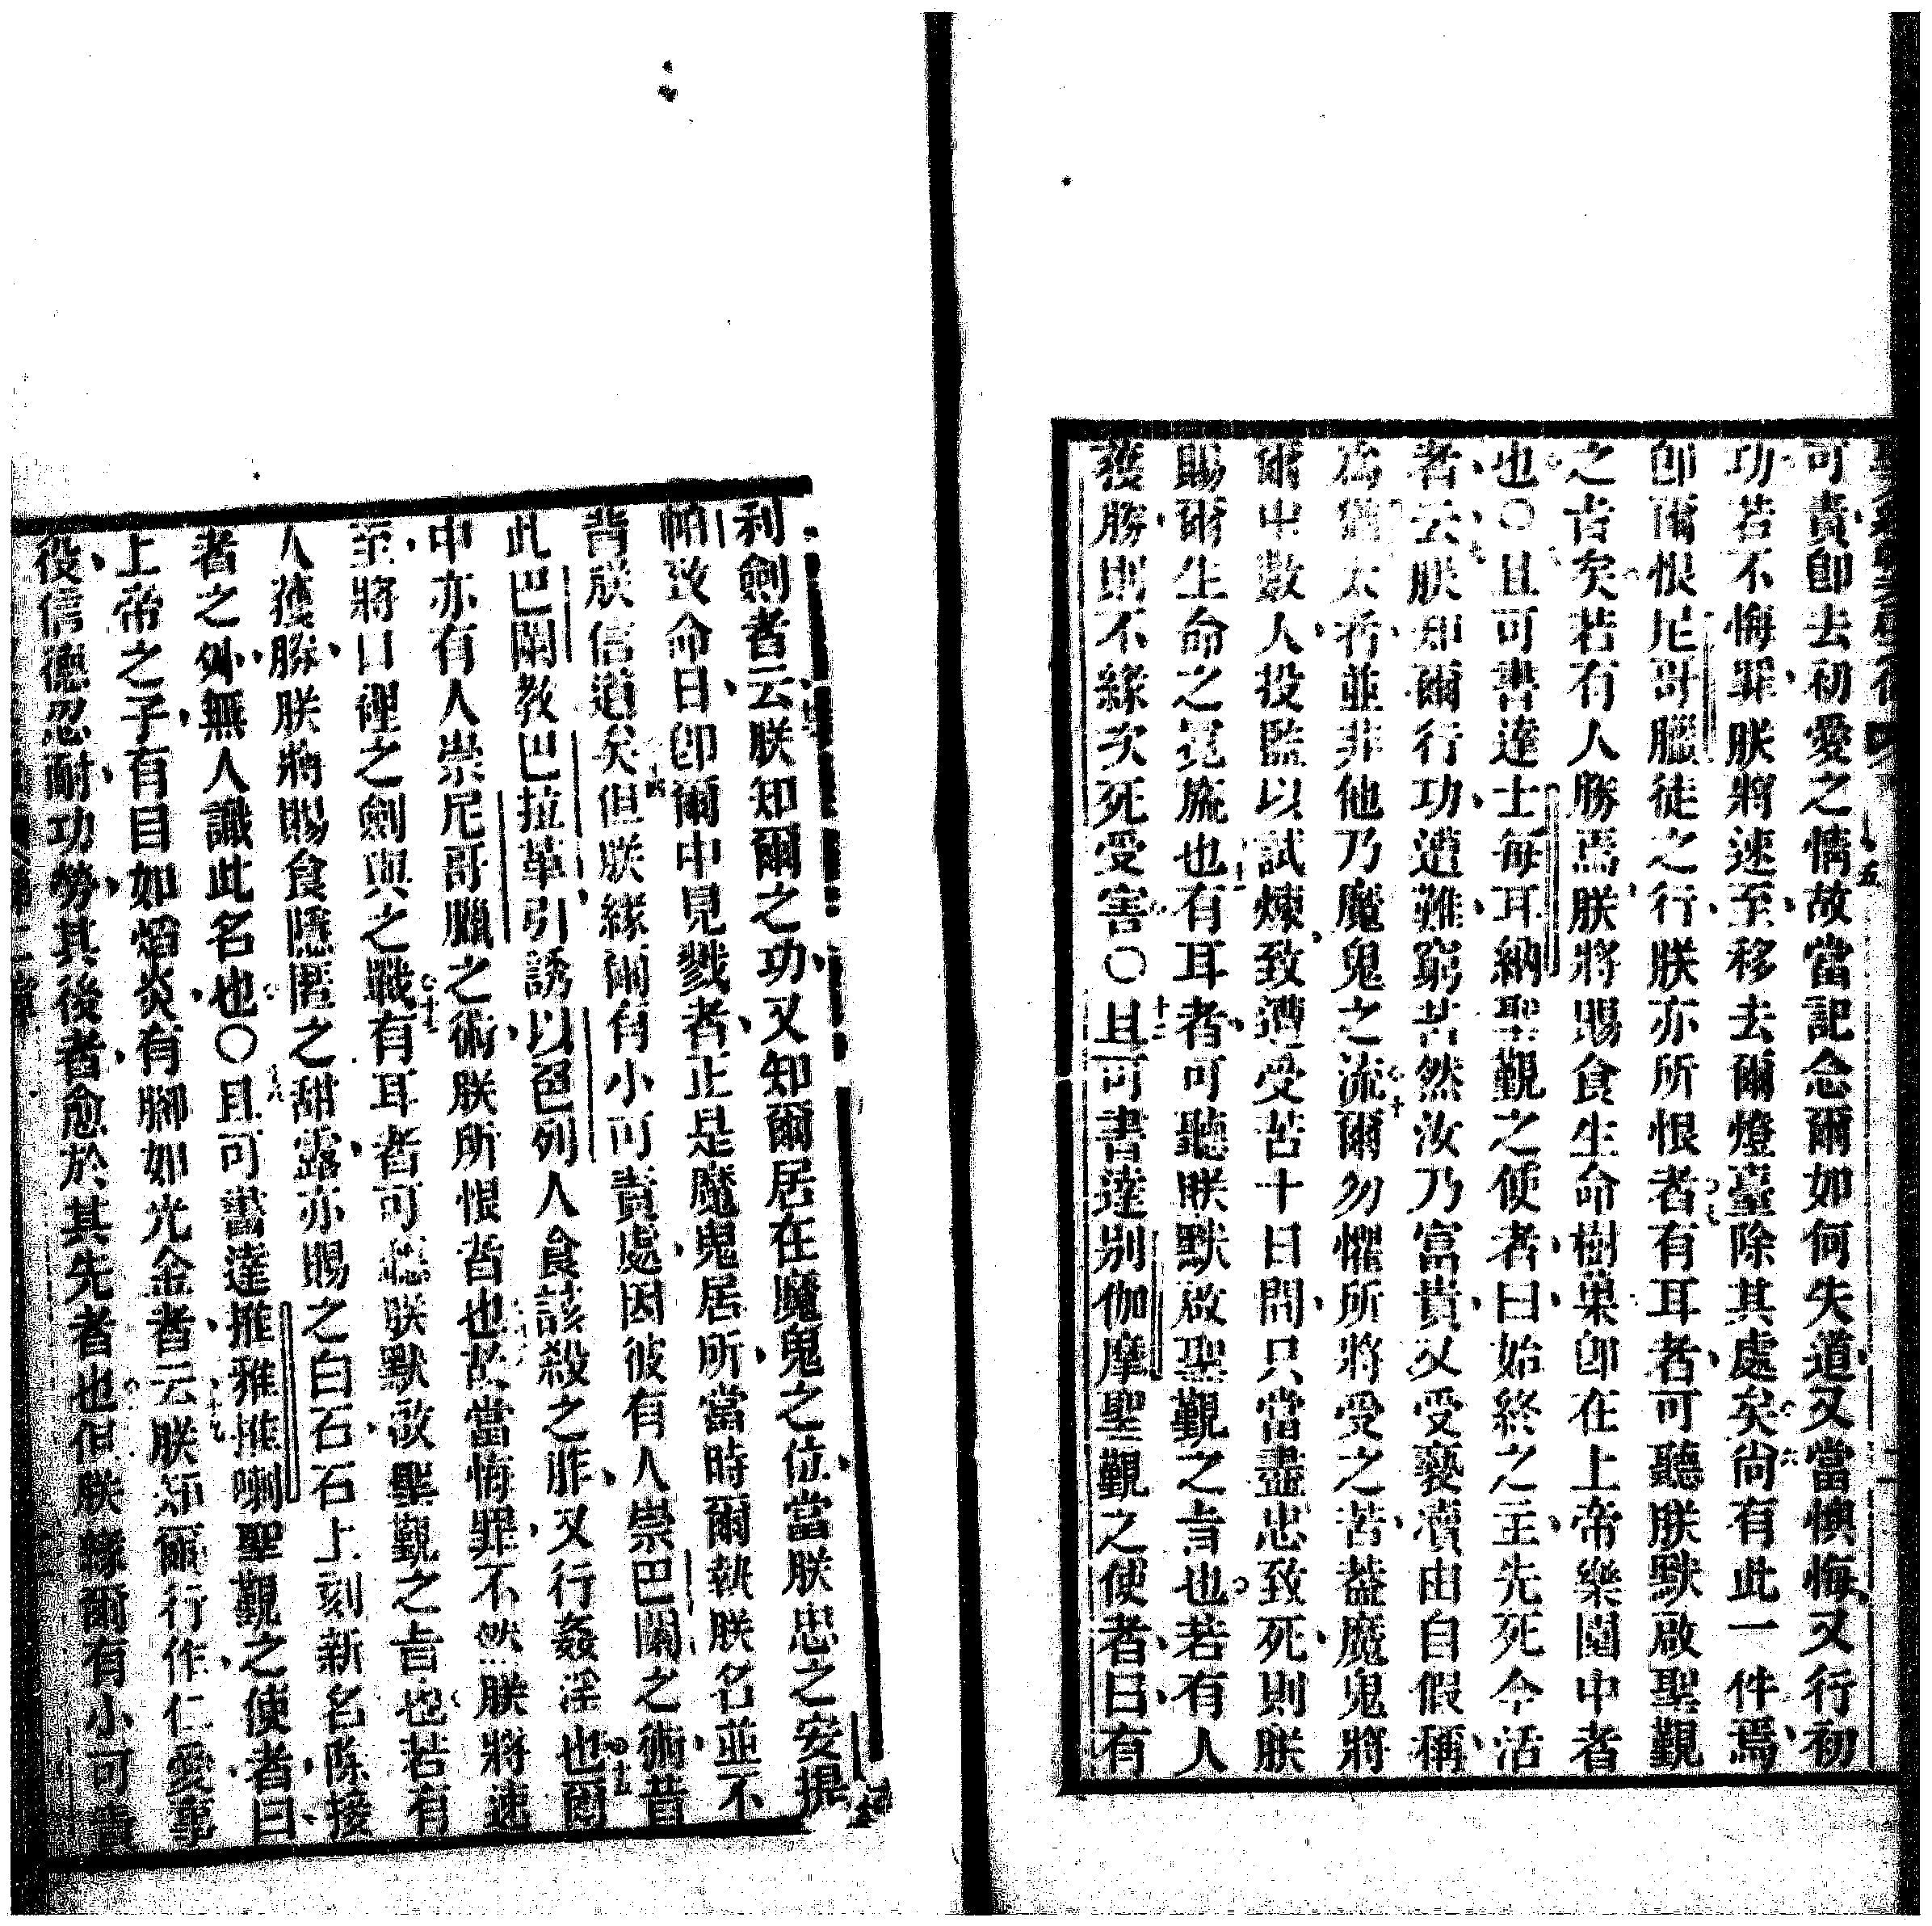 可責卽去初愛之情故當記念爾如何失道又當懊悔又行初
功若不悔罪朕將速至移去爾燈臺除其處矣尙有此一件焉
卽爾恨尼哥臘徒之行朕亦所恨者有耳者可聽朕默啟聖覲
之旨矣若有人勝焉朕將賜食生命樹菓卽在上帝樂園中者
也〇且可書達士每耳納聖覲之使者曰始終之主先死今活
者云朕知爾行功遭難窮苦然汝乃富貴又受褻瀆由自假稱
為猶太者並非他乃魔鬼之流爾勿懼所將受之苦蓋魔鬼將
爾中數人投監以試煉致遭受苦十日間只當盡忠致死則朕
賜爾生命之冕旒也有耳者可聽朕默啟聖覲之旨也若有人
獲勝則不緣次死受害〇且可書達別伽摩聖覲之使者曰有
利劍者云朕知爾之功又知爾居在魔鬼之位當朕忠之安提
帕致命日卽爾中見戮者正是魔鬼居所當時爾執朕名並不
背朕信道矣但朕緣爾有小可責處因彼有人崇巴闌之術昔
此巴闌教巴拉革引誘以色列人食該殺之胙又行姦淫也爾
中亦有人崇尼哥臘之術朕所恨者也故當悔罪不然朕將速
至將口裡之劍與之戰有耳者可聽朕默啟聖覲之旨也若有
人獲勝朕將賜食隱匿之甜露亦賜之白石石上刻新名除接
者之外無人識此名也〇且可書達推雅推喇聖覲之使者曰
上帝之子有目如焰炎有腳如光金者云朕知爾行作仁愛事
役信德忍耐功勞其後者愈於其先者也但朕緣爾有小可責